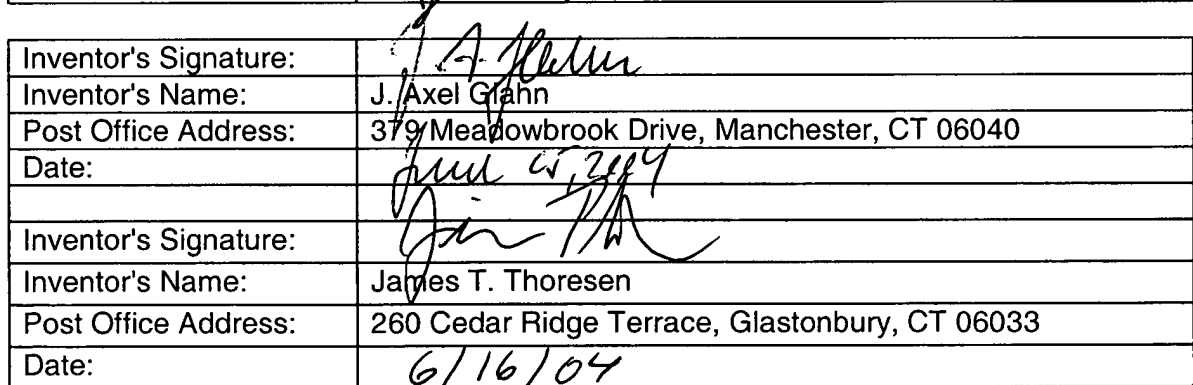 Inventor's Signature:
Inventor's Name: J. Axel Glahn
Post Office Address: 379 Meadowbrook Drive, Manchester, CT 06040
Date: June 2004
Inventor's Signature: Jim
Inventor's Name: James T. Thoresen
Post Office Address: 260 Cedar Ridge Terrace, Glastonbury, CT 06033
Date: 6/16/04